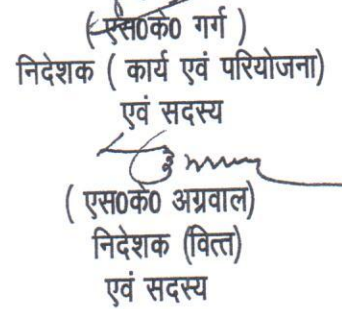 ( एस0के0 गर्ग )
निदेशक ( कार्य एवं परियोजना)
एवं सदस्य
( एस0के0 अग्रवाल)
निदेशक (वित्त)
एवं सदस्य